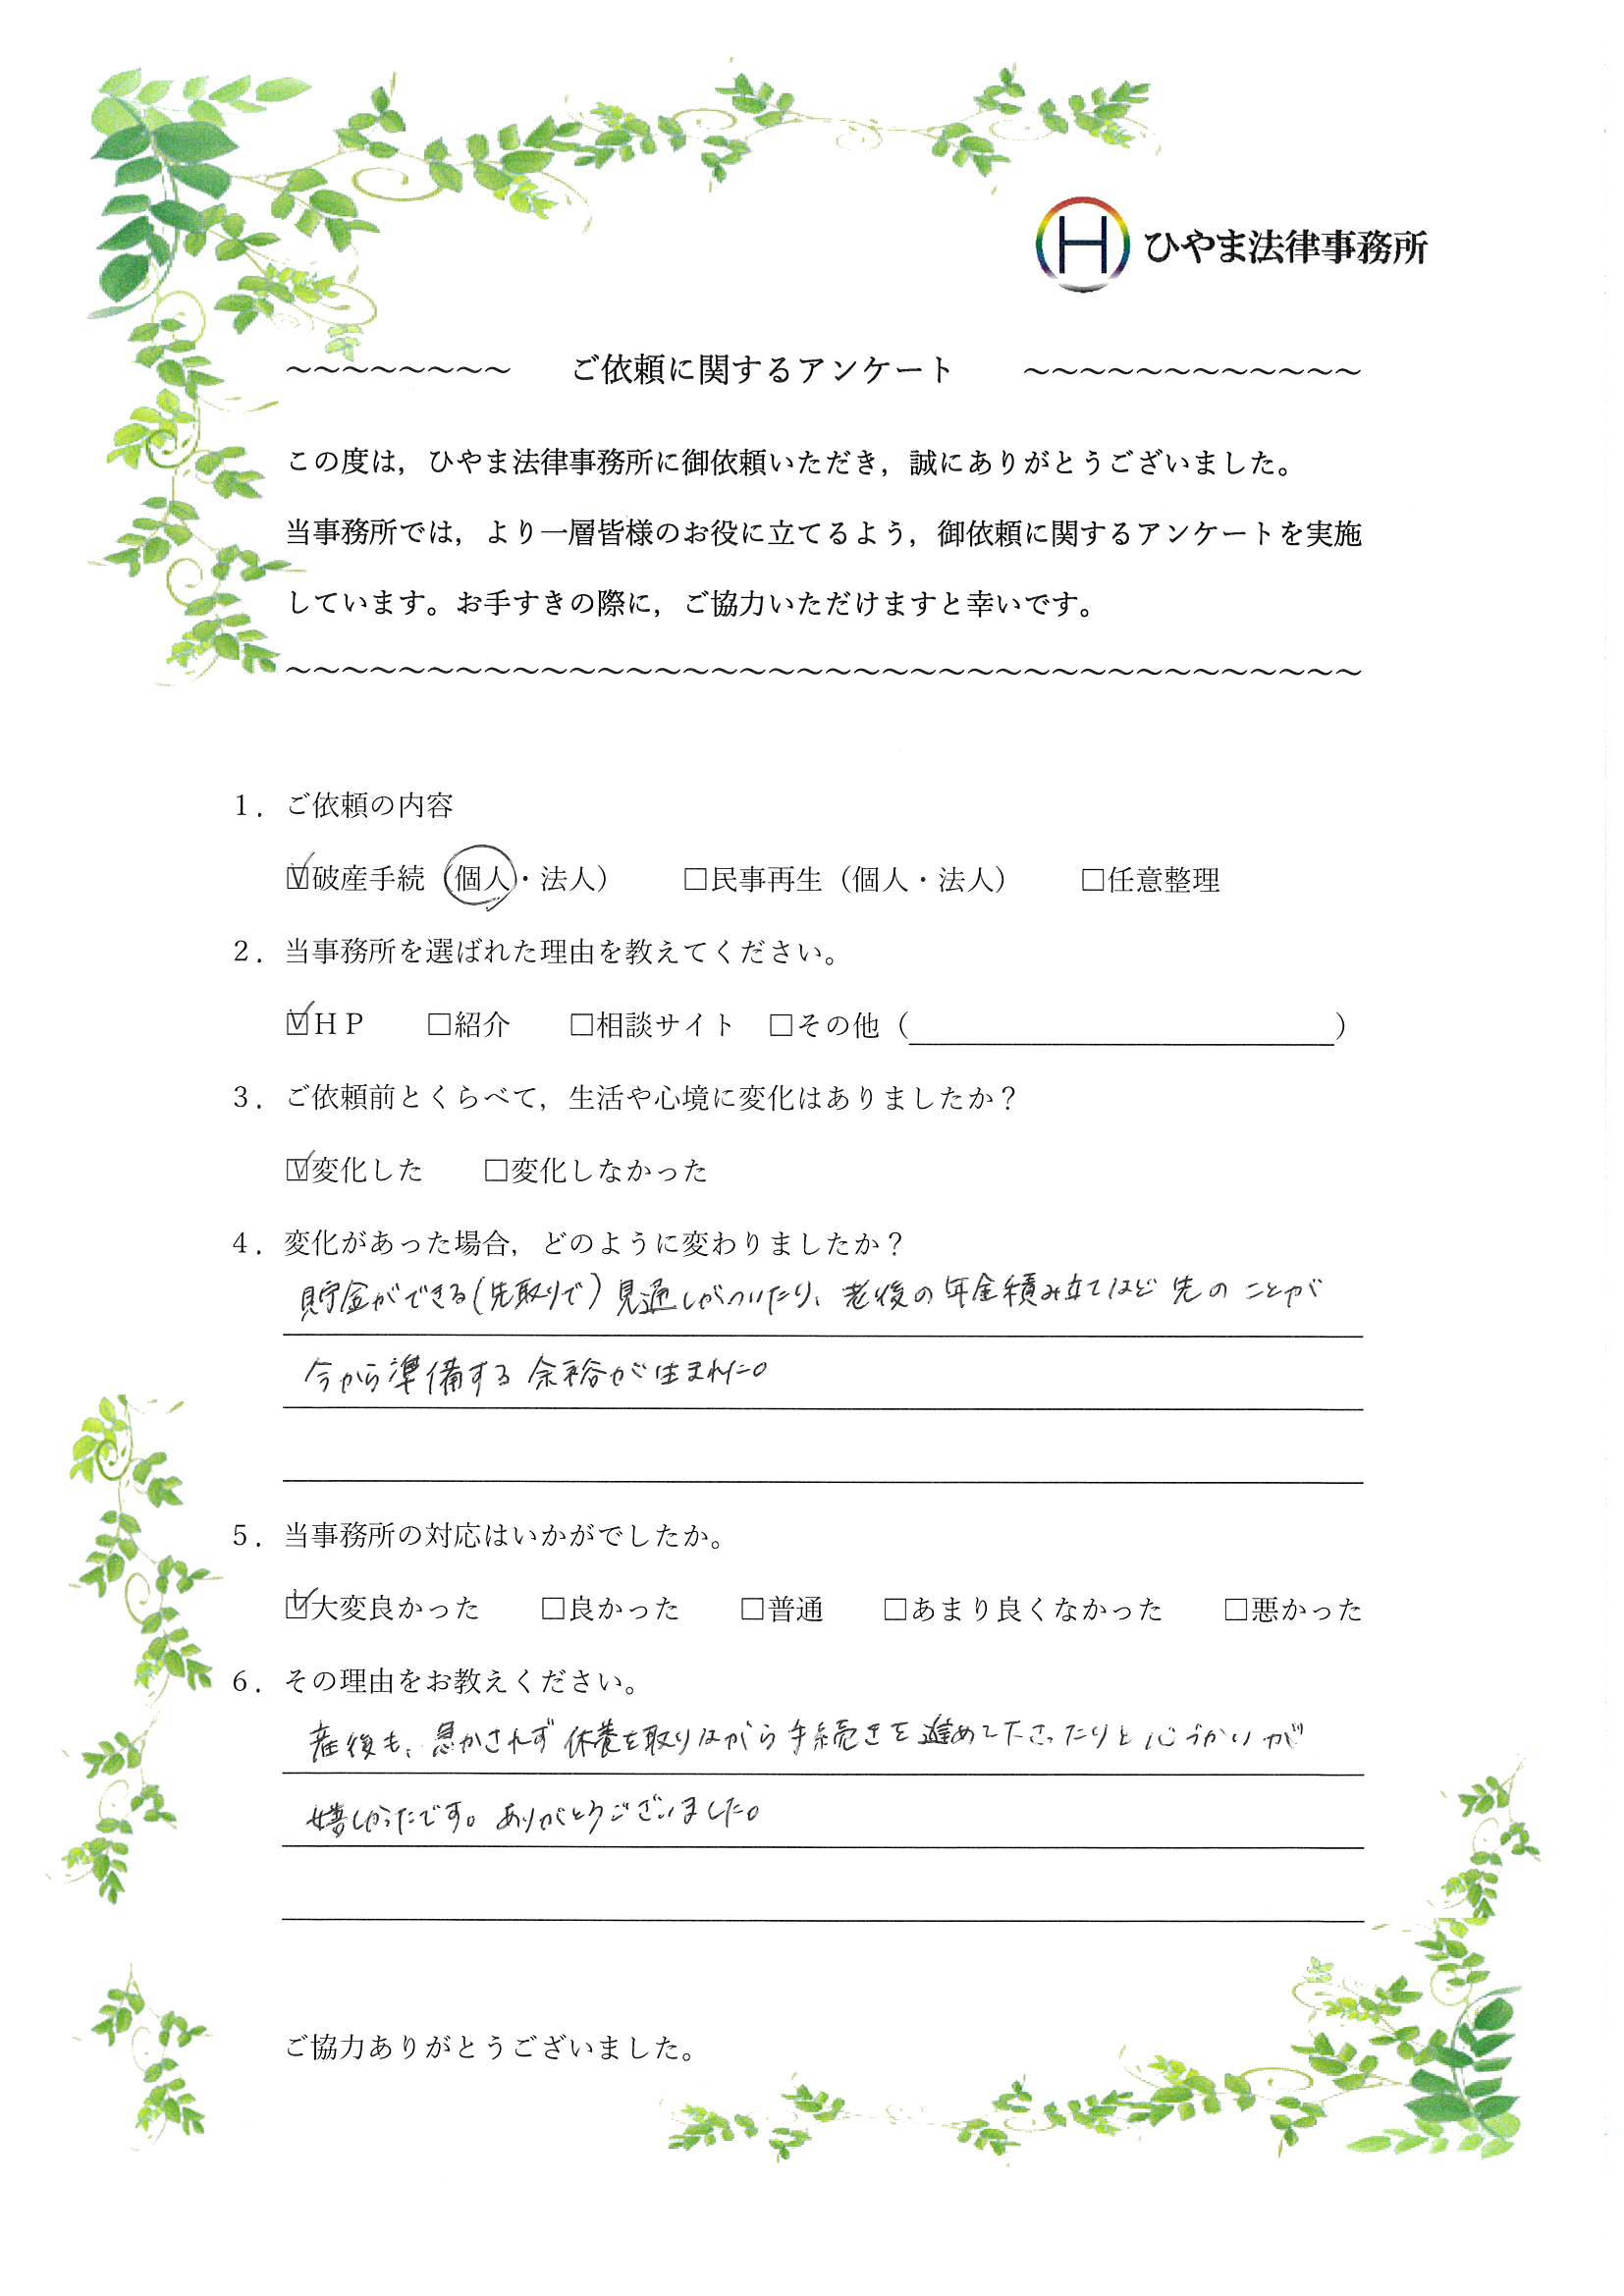 H ひやま法律事務所
～～～～～～～～ ご依頼に関するアンケート ～～～～～～～～～～～～
この度は，ひやま法律事務所に御依頼いただき，誠にありがとうございました。
当事務所では，より一層皆様のお役に立てるよう，御依頼に関するアンケートを実施
しています。お手すきの際に，ご協力いただけますと幸いです。
～～～～～～～～～～～～～～～～～～～～～～～～～～～～～～～～～～～～～～
１．ご依頼の内容
☑破産手続（個人・法人） □民事再生（個人・法人） □任意整理
２．当事務所を選ばれた理由を教えてください。
☑ＨＰ □紹介 □相談サイト □その他（　　　　　）
３．ご依頼前とくらべて，生活や心境に変化はありましたか？
☑変化した □変化しなかった
４．変化があった場合，どのように変わりましたか？
貯金ができる(先取りで)見通しがついたり、老後の年金積み立てなど先のことが
今から準備する余裕が生まれた。
５．当事務所の対応はいかがでしたか。
☑大変良かった □良かった □普通 □あまり良くなかった □悪かった
６．その理由をお教えください。
産後も、急かされず休養を取りながら手続きを進めて下さったりと心づかいが
嬉しかったです。ありがとうございました。
ご協力ありがとうございました。